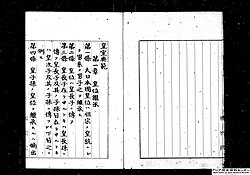 皇室典範
第一章 皇位繼承
第一條 大日本國皇位ハ祖宗ノ皇統ニシ
テ男系ノ男子之ヲ繼承ス
第二條 皇位ハ皇長子ニ傳フ
第三條 皇長子在ラサルトキハ皇長孫
ニ傳フ皇長子及其ノ子孫皆在ラサルトキ
ハ皇次子及其ノ子孫ニ傳フ以下皆之ニ
例ス
第四條 皇子孫ノ皇位ヲ繼承スルハ嫡出